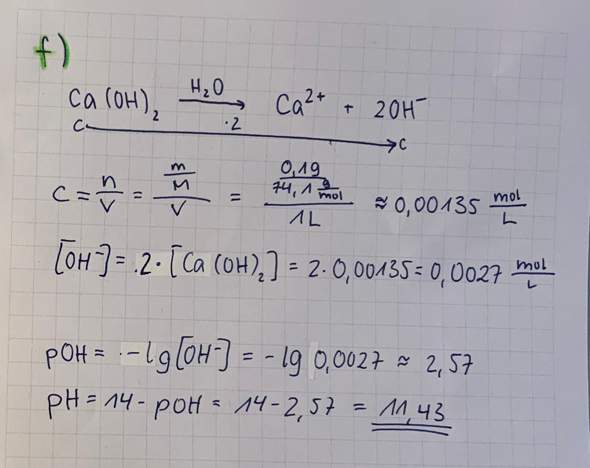 f)
Ca(OH)₂ —H₂O→ Ca²⁺ + 2OH⁻
c ·2 → c
c = n/V = (m/M)/V = (0,1g / 74,1 g/mol) / 1L ≈ 0,00135 mol/L
[OH⁻] = .2·[Ca(OH)₂] = 2·0,00135 = 0,0027 mol/L
pOH = ·-lg[OH⁻] = -lg 0,0027 ≈ 2,57
pH = 14 - pOH = 14 - 2,57 = 11,43